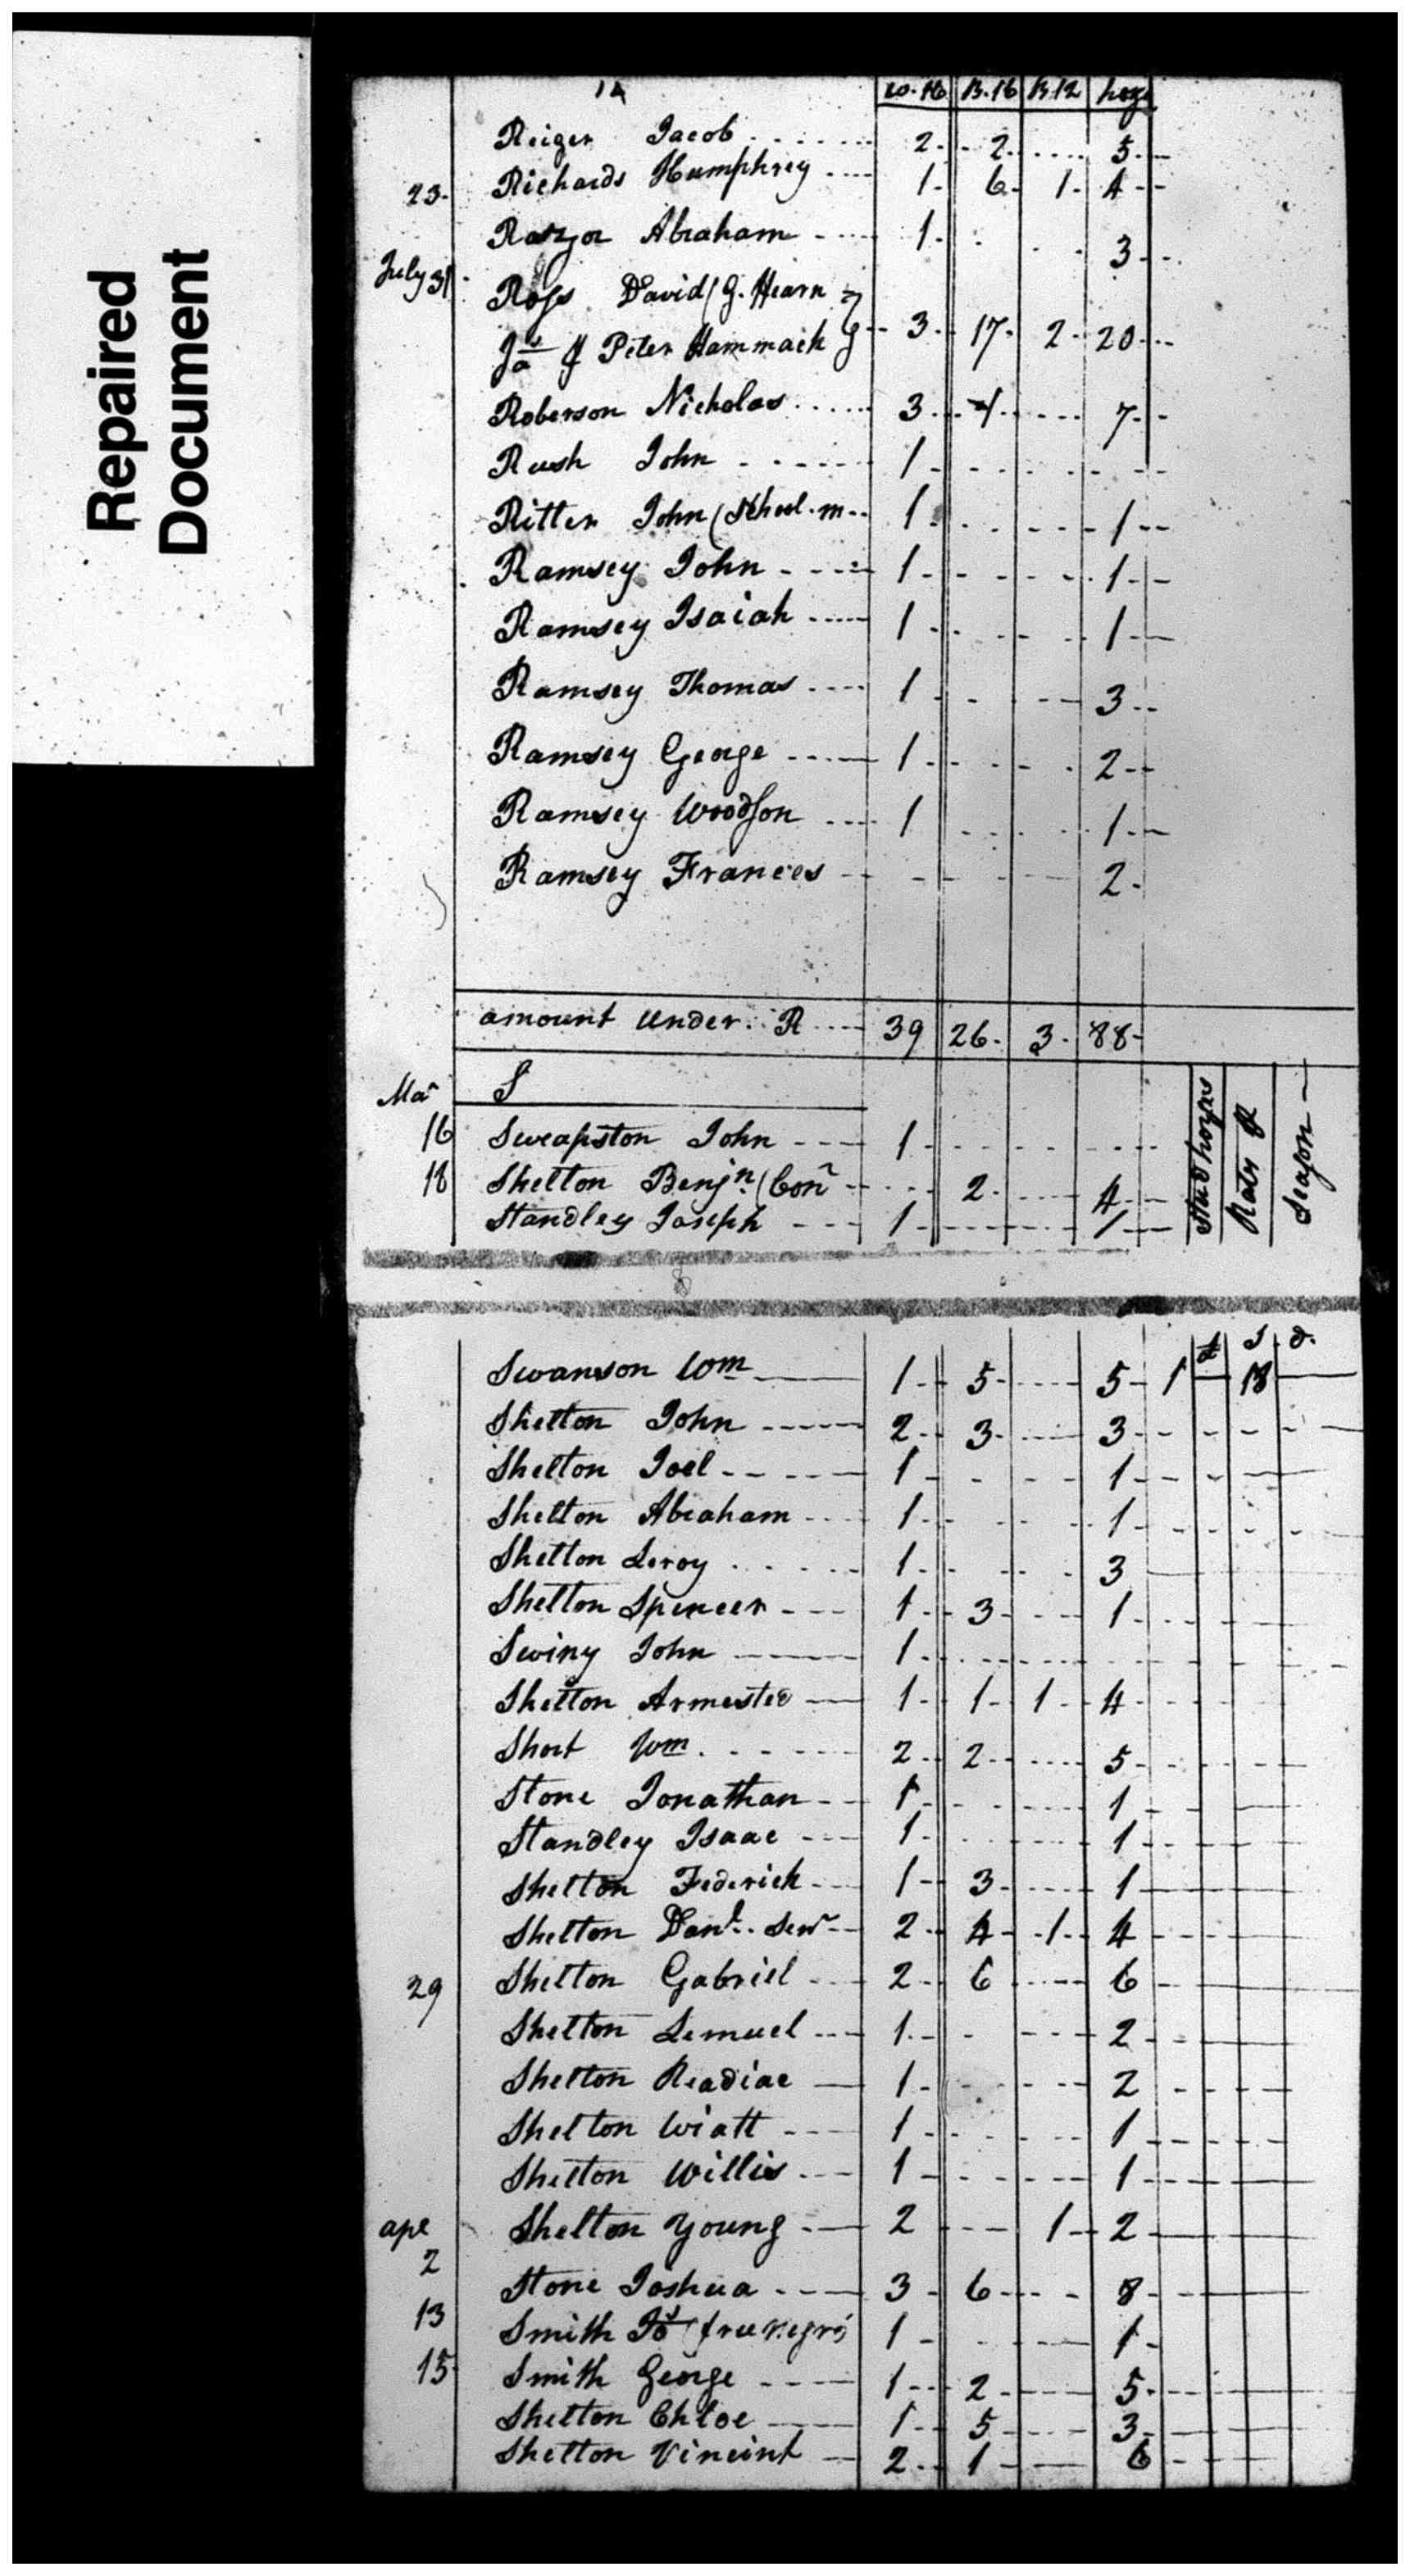 Repaired
Document
w.16 B.16 B.12 hogs
Reiger Jacob 2 2 5
23 Richards Humphrey 1 6 1 4
Razor Abraham 1 3
July 31 Ross David (G. Hearn
Jas & Peter Hammack 3 17 2 20
Roberson Nicholas 3 7
Rush John 1
Ritter John (School.m 1 1
Ramsey John 1 1
Ramsey Isaiah 1 1
Ramsey Thomas 1 3
Ramsey George 1 2
Ramsey Woodson 1 1
Ramsey Frances 2
amount Under R 39 26 3 88
Mar S Stud horses Rates of Season
16 Sweapston John 1
18 Shelton Benjn (Conr 2 4
Standley Joseph 1 1
£ S d
Swanson Wm 1 5 5 1 18
Shelton John 2 3 3
Shelton Joel 1 1
Shelton Abraham 1 1
Shelton Leroy 1 3
Shelton Spencer 1 3 1
Swiny John 1
Shelton Armested 1 1 1 4
Short Wm 2 2 5
Stone Jonathan 1 1
Standley Isaac 1 1
Shelton Federick 1 3 1
Shelton Danl Senr 2 4 1 4
29 Shelton Gabriel 2 6 6
Shelton Lemuel 1 2
Shelton Readiac 1 2
Shelton Wiatt 1 1
Shelton Willis 1 1
ape Shelton Young 2 1 2
2
Stone Joshua 3 6 8
13 Smith Jo (free negro) 1 1
15 Smith George 1 2 5
Shelton Chloe 1 5 3
Shelton Vincint 2 1 6